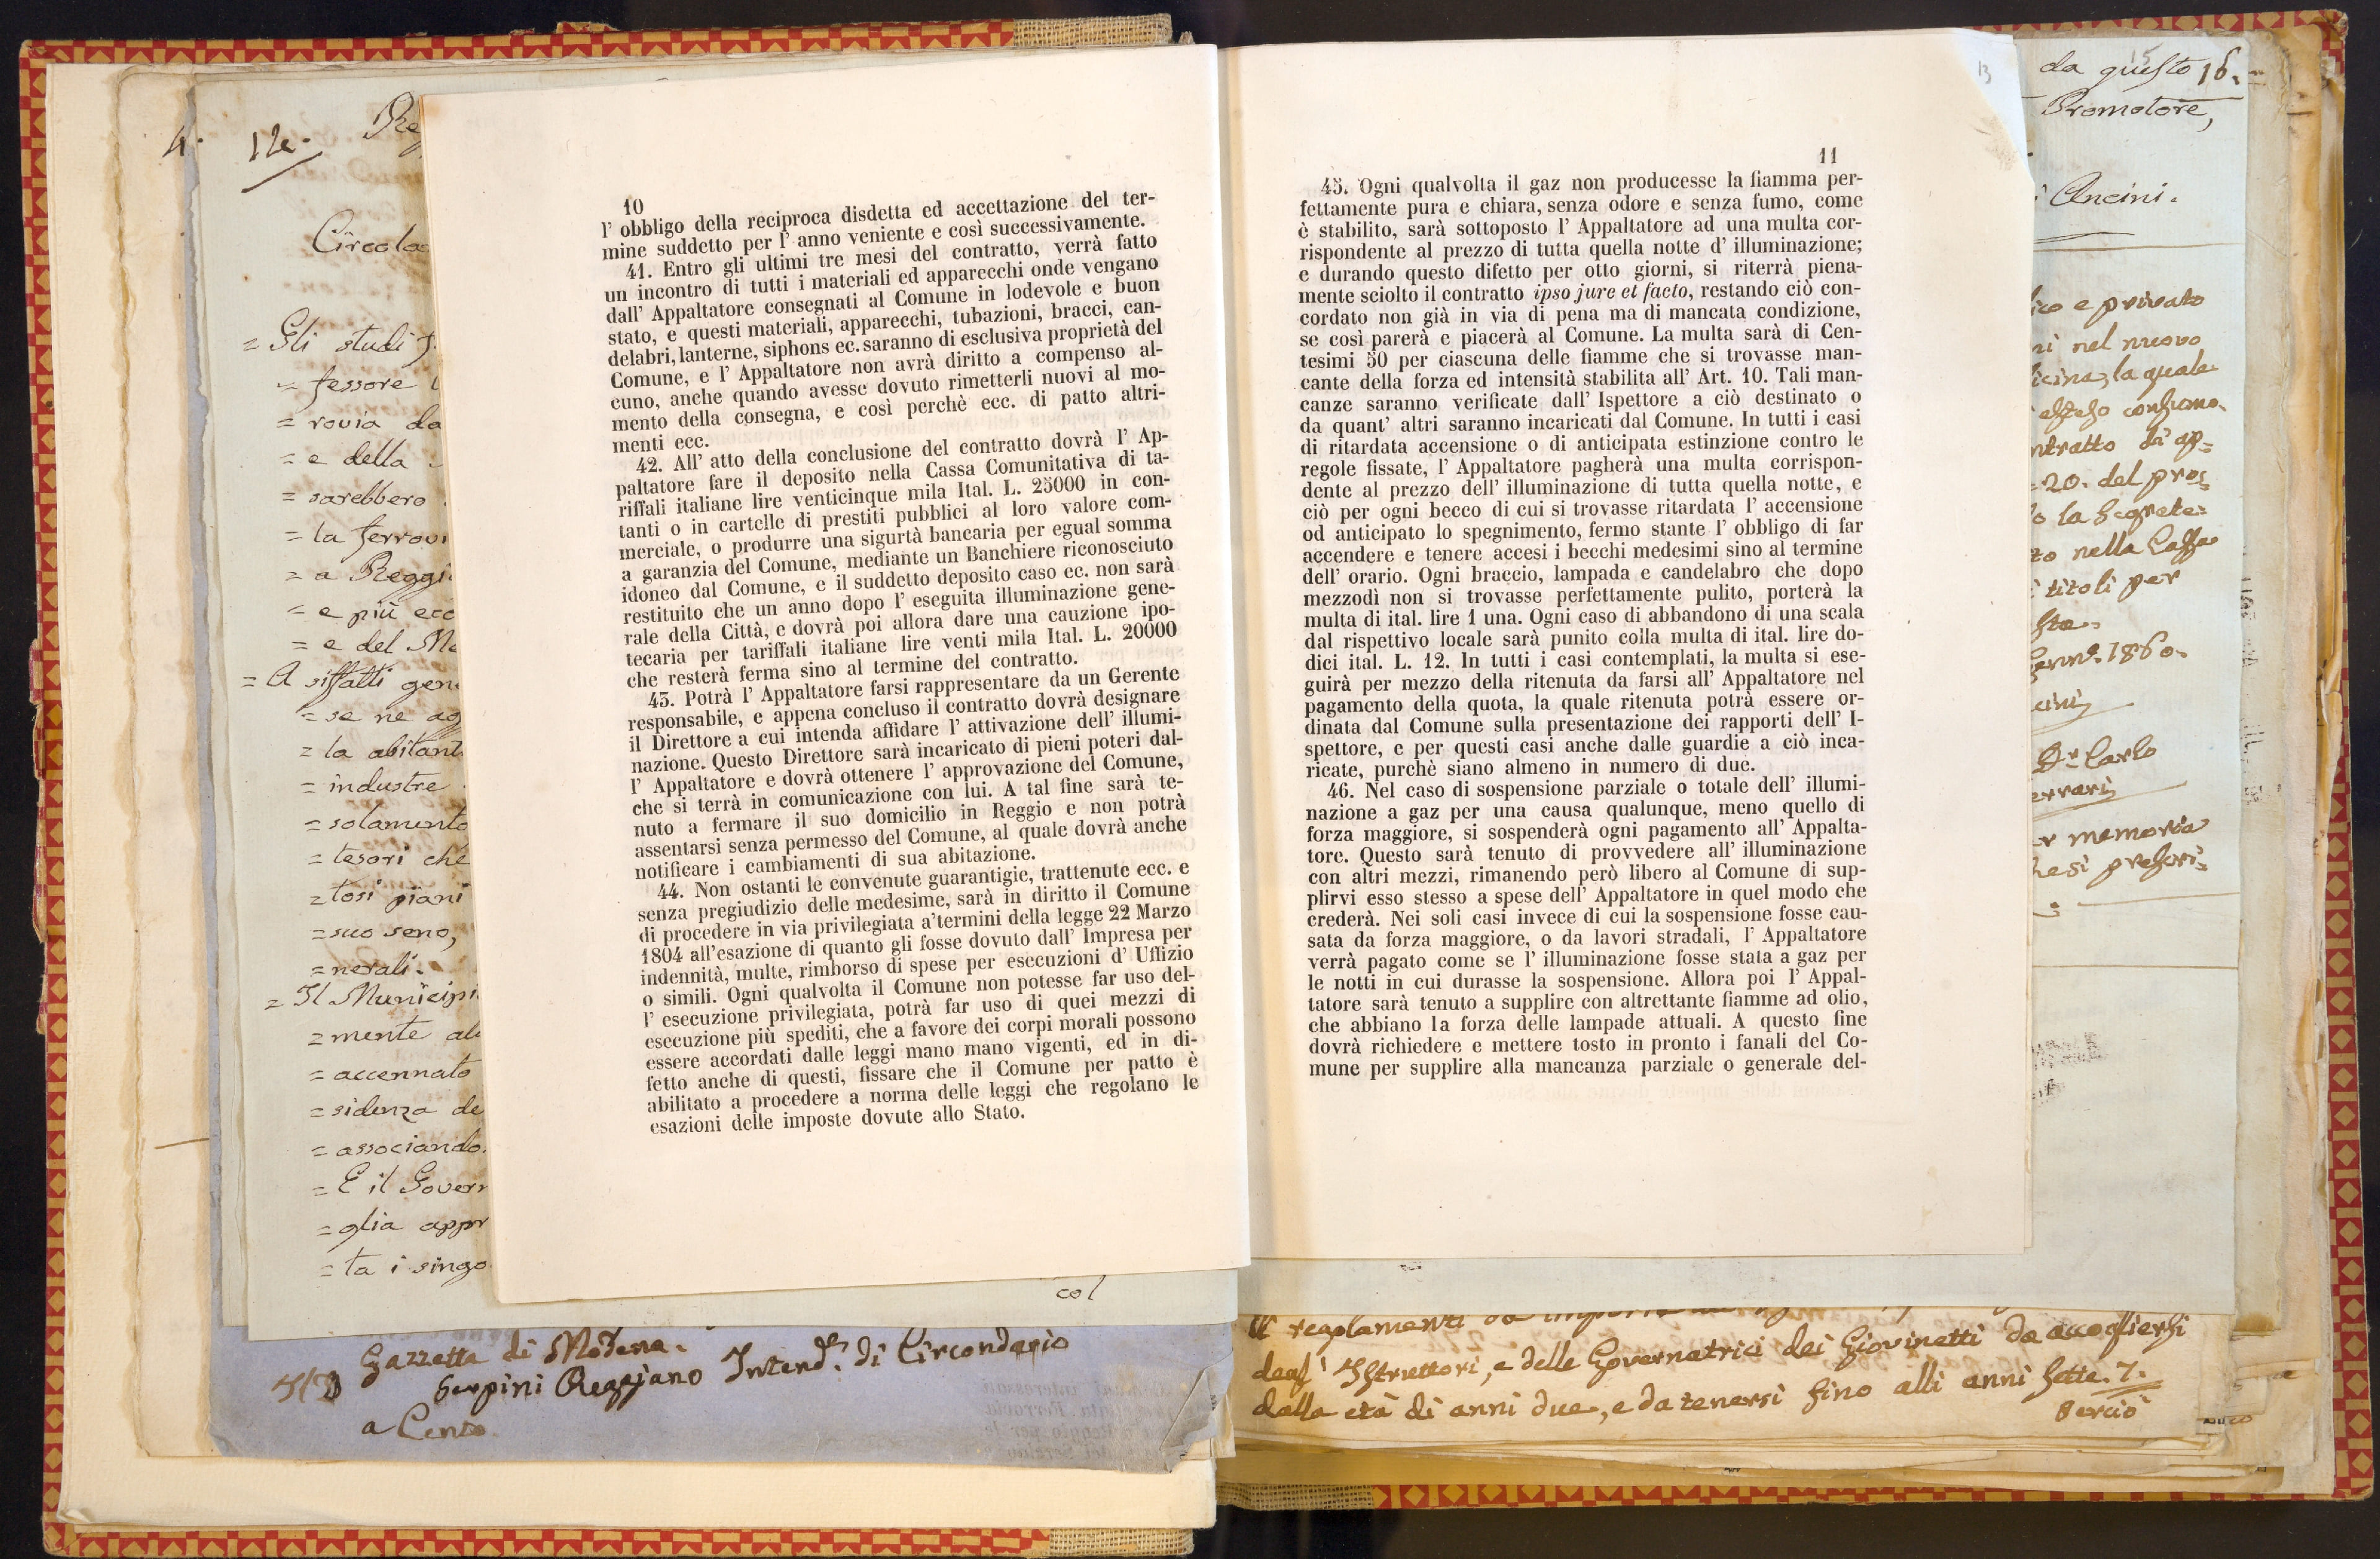 4.
12e.
Circola
= Gli studi
= fessore
= rovia da
= e della
= sarebbero
= la ferrovi
= a Reggi
= e più eco
= e del Mo
= A siffatti gen
= se ne ag
= la abitant
= industre
= solamento
= tesori che
= tosi piani
= suo seno,
= nerali.
= Il Municipi
= mente al
= accennato
= sidenza de
= associando
= E il Govern
= glia appr
= ta i singo
col
Gazzetta di Modena.
Serpini Reggiano Intend.e di Circondario
a Cento
10
l' obbligo della reciproca disdetta ed accettazione del ter-
mine suddetto per l' anno veniente e così successivamente.
41. Entro gli ultimi tre mesi del contratto, verrà fatto
un incontro di tutti i materiali ed apparecchi onde vengano
dall' Appaltatore consegnati al Comune in lodevole e buon
stato, e questi materiali, apparecchi, tubazioni, bracci, can-
delabri, lanterne, siphons ec. saranno di esclusiva proprietà del
Comune, e l' Appaltatore non avrà diritto a compenso al-
cuno, anche quando avesse dovuto rimetterli nuovi al mo-
mento della consegna, e così perchè ecc. di patto altri-
menti ecc.
42. All' atto della conclusione del contratto dovrà l' Ap-
paltatore fare il deposito nella Cassa Comunitativa di ta-
riffali italiane lire venticinque mila Ital. L. 25000 in con-
tanti o in cartelle di prestiti pubblici al loro valore com-
merciale, o produrre una sigurtà bancaria per egual somma
a garanzia del Comune, mediante un Banchiere riconosciuto
idoneo dal Comune, e il suddetto deposito caso ec. non sarà
restituito che un anno dopo l' eseguita illuminazione gene-
rale della Città, e dovrà poi allora dare una cauzione ipo-
tecaria per tariffali italiane lire venti mila Ital. L. 20000
che resterà ferma sino al termine del contratto.
43. Potrà l' Appaltatore farsi rappresentare da un Gerente
responsabile, e appena concluso il contratto dovrà designare
il Direttore a cui intenda affidare l' attivazione dell' illumi-
nazione. Questo Direttore sarà incaricato di pieni poteri dal-
l' Appaltatore e dovrà ottenere l' approvazione del Comune,
che si terrà in comunicazione con lui. A tal fine sarà te-
nuto a fermare il suo domicilio in Reggio e non potrà
assentarsi senza permesso del Comune, al quale dovrà anche
notificare i cambiamenti di sua abitazione.
44. Non ostanti le convenute guarantigie, trattenute ecc. e
senza pregiudizio delle medesime, sarà in diritto il Comune
di procedere in via privilegiata a'termini della legge 22 Marzo
1804 all'esazione di quanto gli fosse dovuto dall' Impresa per
indennità, multe, rimborso di spese per esecuzioni d' Uffizio
o simili. Ogni qualvolta il Comune non potesse far uso del-
l' esecuzione privilegiata, potrà far uso di quei mezzi di
esecuzione più spediti, che a favore dei corpi morali possono
essere accordati dalle leggi mano mano vigenti, ed in di-
fetto anche di questi, fissare che il Comune per patto è
abilitato a procedere a norma delle leggi che regolano le
esazioni delle imposte dovute allo Stato.
13
11
45. Ogni qualvolta il gaz non producesse la fiamma per-
fettamente pura e chiara, senza odore e senza fumo, come
è stabilito, sarà sottoposto l' Appaltatore ad una multa cor-
rispondente al prezzo di tutta quella notte d' illuminazione;
e durando questo difetto per otto giorni, si riterrà piena-
mente sciolto il contratto ipso jure et facto, restando ciò con-
cordato non già in via di pena ma di mancata condizione,
se così parerà e piacerà al Comune. La multa sarà di Cen-
tesimi 50 per ciascuna delle fiamme che si trovasse man-
cante della forza ed intensità stabilita all' Art. 10. Tali man-
canze saranno verificate dall' Ispettore a ciò destinato o
da quant' altri saranno incaricati dal Comune. In tutti i casi
di ritardata accensione o di anticipata estinzione contro le
regole fissate, l' Appaltatore pagherà una multa corrispon-
dente al prezzo dell' illuminazione di tutta quella notte, e
ciò per ogni becco di cui si trovasse ritardata l' accensione
od anticipato lo spegnimento, fermo stante l' obbligo di far
accendere e tenere accesi i becchi medesimi sino al termine
dell' orario. Ogni braccio, lampada e candelabro che dopo
mezzodì non si trovasse perfettamente pulito, porterà la
multa di ital. lire 1 una. Ogni caso di abbandono di una scala
dal rispettivo locale sarà punito colla multa di ital. lire do-
dici ital. L. 12. In tutti i casi contemplati, la multa si ese-
guirà per mezzo della ritenuta da farsi all' Appaltatore nel
pagamento della quota, la quale ritenuta potrà essere or-
dinata dal Comune sulla presentazione dei rapporti dell' I-
spettore, e per questi casi anche dalle guardie a ciò inca-
ricate, purchè siano almeno in numero di due.
46. Nel caso di sospensione parziale o totale dell' illumi-
nazione a gaz per una causa qualunque, meno quello di
forza maggiore, si sospenderà ogni pagamento all' Appalta-
tore. Questo sarà tenuto di provvedere all' illuminazione
con altri mezzi, rimanendo però libero al Comune di sup-
plirvi esso stesso a spese dell' Appaltatore in quel modo che
crederà. Nei soli casi invece di cui la sospensione fosse cau-
sata da forza maggiore, o da lavori stradali, l' Appaltatore
verrà pagato come se l' illuminazione fosse stata a gaz per
le notti in cui durasse la sospensione. Allora poi l' Appal-
tatore sarà tenuto a supplire con altrettante fiamme ad olio,
che abbiano la forza delle lampade attuali. A questo fine
dovrà richiedere e mettere tosto in pronto i fanali del Co-
mune per supplire alla mancanza parziale o generale del-
da questo 16.
Promotore,
Ancini.
ico e privato
ni nel nuovo
icina, la quale
ntratto di ap=
20. del pros
o la Segrete=
zo nella Cassa
titoli per
Genn.o 1860.
cini
Dr Carlo
errari
r memoria
degl' Istruttori, e delle Governatrici dei Giovinetti da accogliersi
dalla età di anni due, e da tenersi fino alli anni sette. 7.
Perciò